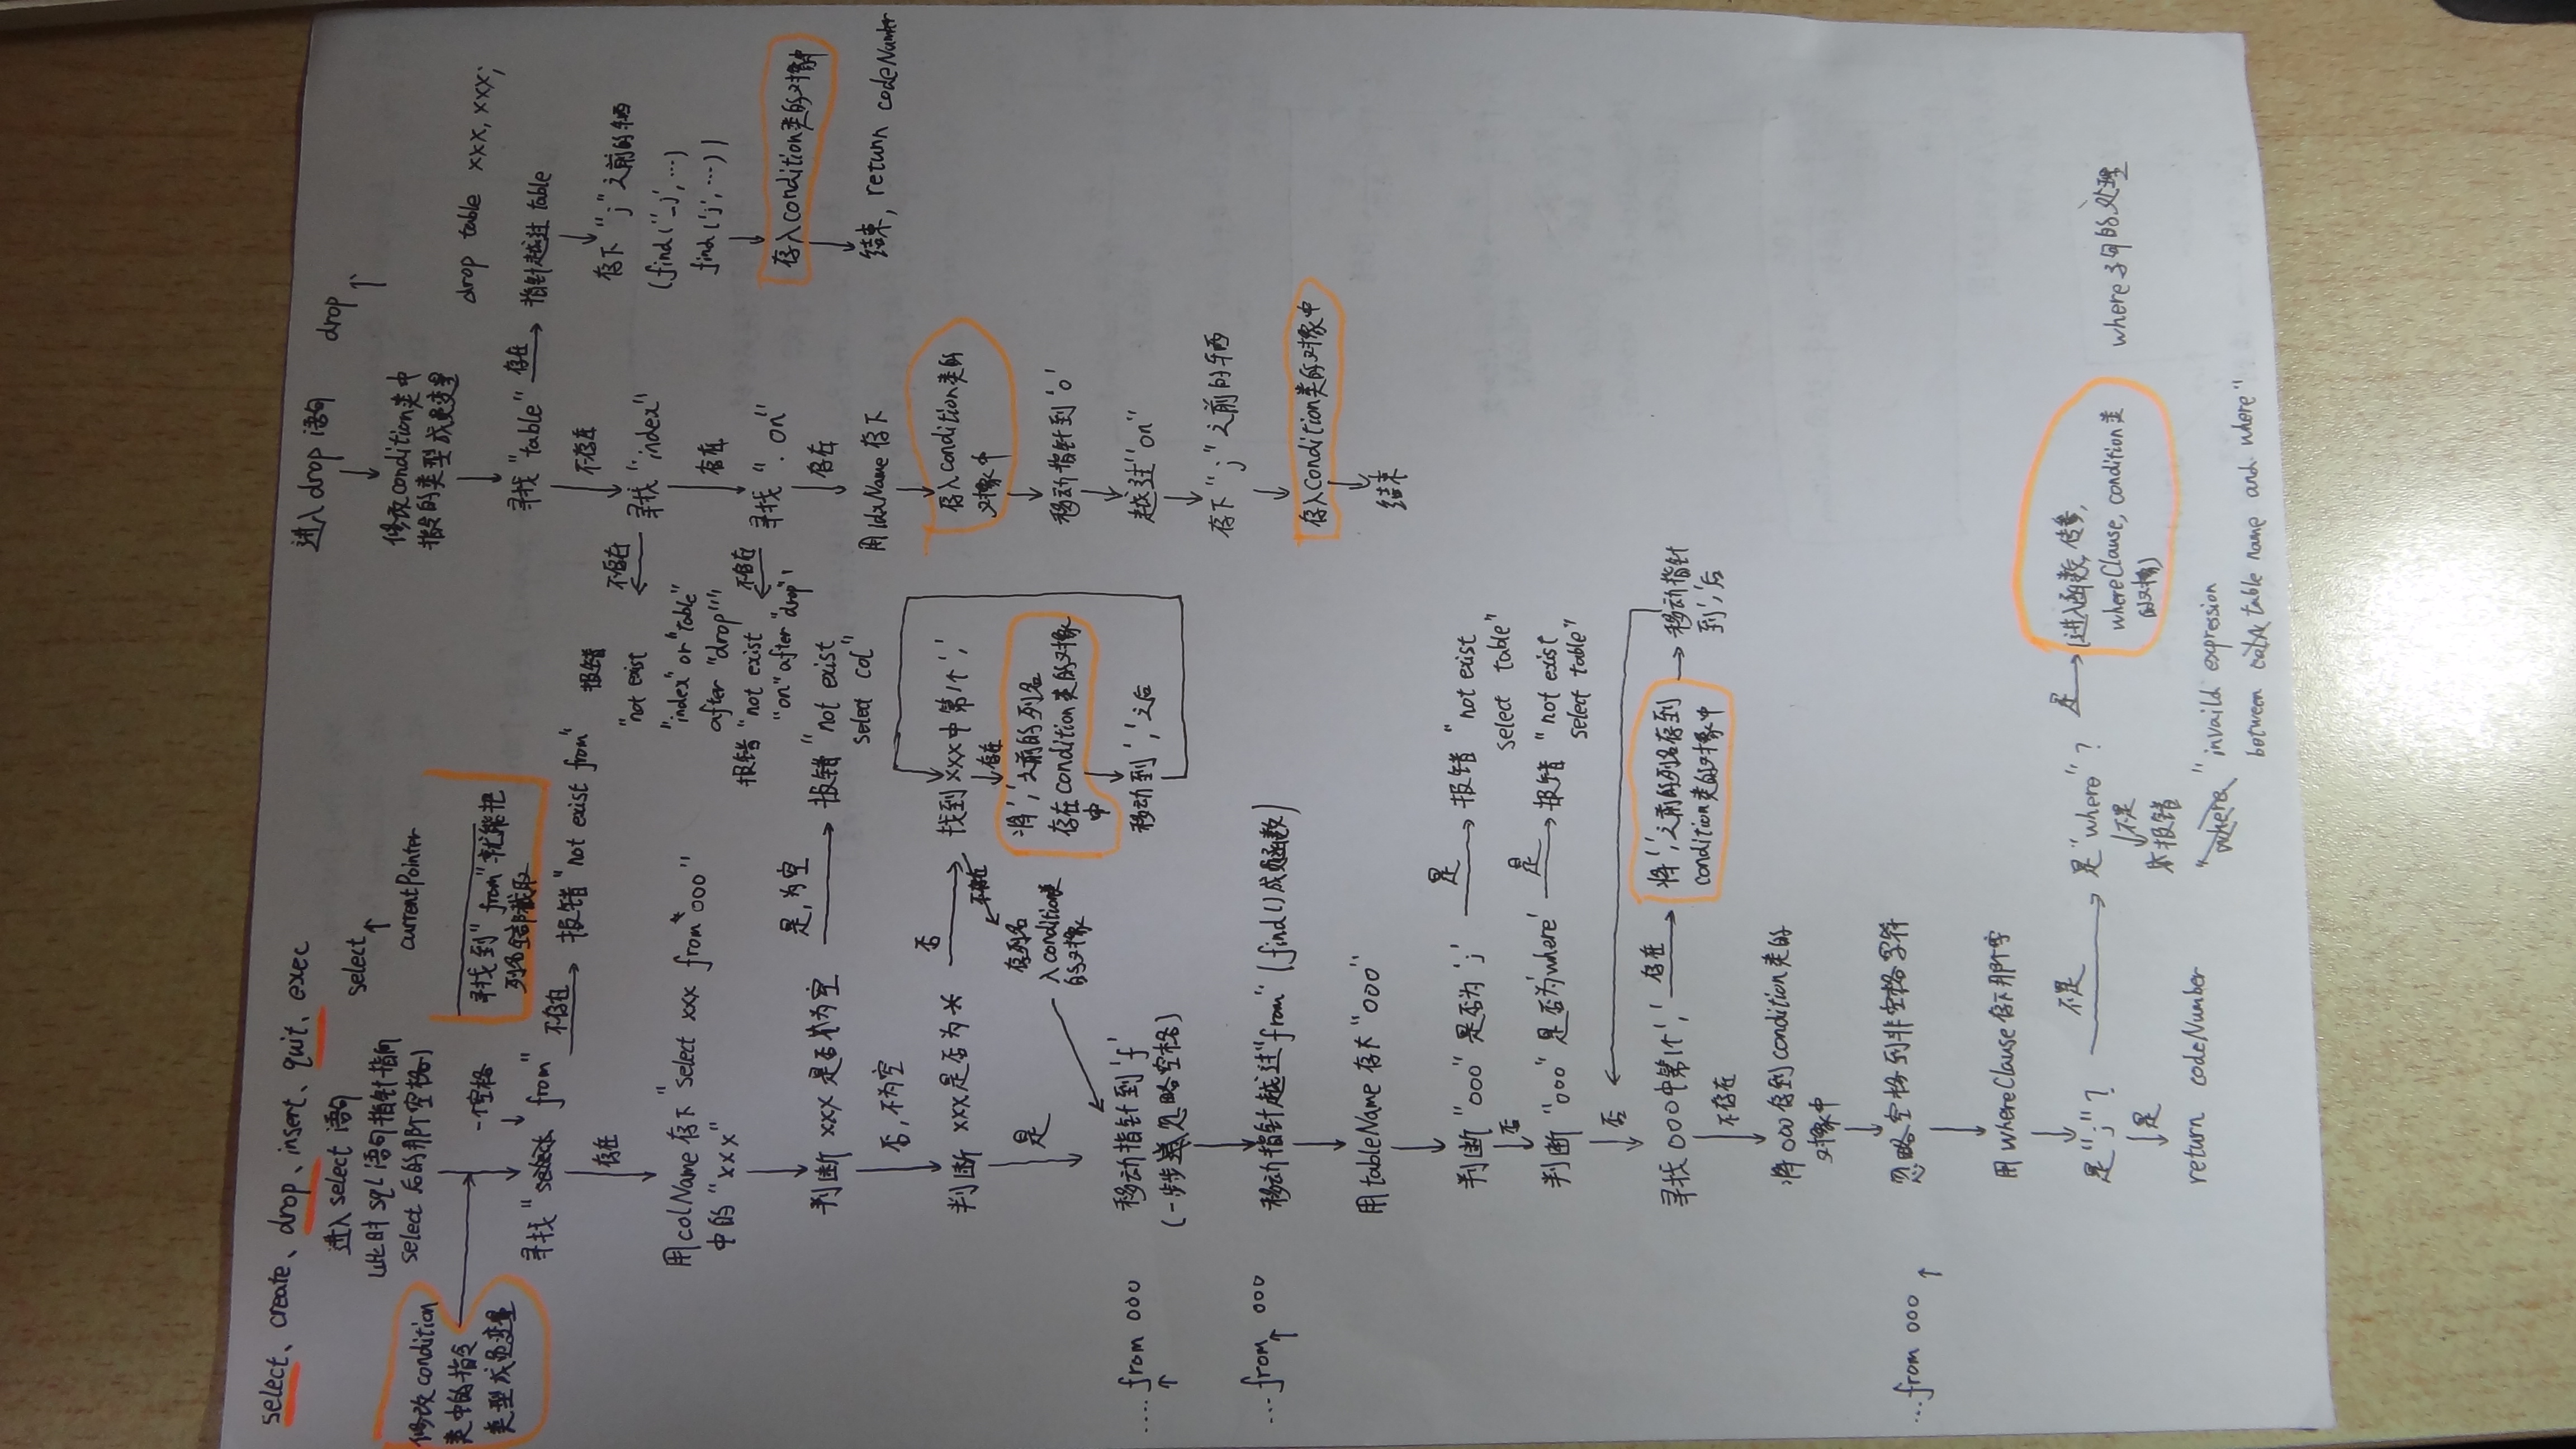 select、create、drop、insert、quit、exec
进入select语句
此时sql语句指针指向
select后的那个空格)
select
↑
currentPointer
修改condition
类中的指令
类型成员变量
一个空格
寻找到"from"就能把
列名全部截取
寻找"from"
不存在
报错"not exist from"
存在
用colName存下"select xxx from 000"
中的"xxx"
判断xxx是否为空
是,为空
报错"not exist
select col"
否,不为空
判断xxx是否为*
否
找到xxx中第1个','
存在
将','之前的列名
存在condition类的对象
中
移动到','之后
不存在
存列名
入condition
的对象
是
移动指针到'f'
(一步步忽略空格)
....from 000
↑
移动指针越过"from"(find()成员函数)
...from 000
↑
用tableName存下"000"
判断"000"是否为';'
是
报错"not exist
select table"
否
判断"000"是否为'where'
是
报错"not exist
select table"
否
寻找000中第1个','
存在
将','之前的列名存到
condition类的对象中
移动指针
到','后
不存在
将000存到condition类的
对象中
忽略空格到非空格字符
...from 000
↑
用whereClause存下那个字
是";"?
不是
是"where"?
是
(进入函数,传参,
whereClause,condition类
的对象)
where子句的处理
是
return codeNumber
不是
报错
"invaild expression
between table name and where"
进入drop语句
drop
↑
修改condition类中
指令的类型成员变量
寻找"table"
存在
指针越过table
drop table xxx,xxx;
存下";"之前的东西
(find(' ;',...)
find(';',...))
存入condition类的对象中
结束,return codeNumber
不存在
寻找"index"
不存在
报错
"not exist
"index" or "table"
after "drop""
存在
寻找"on"
不存在
报错"not exist
"on" after "drop"'
存在
用IdxName存下
存入condition类的
对象中
移动指针到'o'
越过"on"
存下";"之前的东西
存入Condition类的对象中
结束